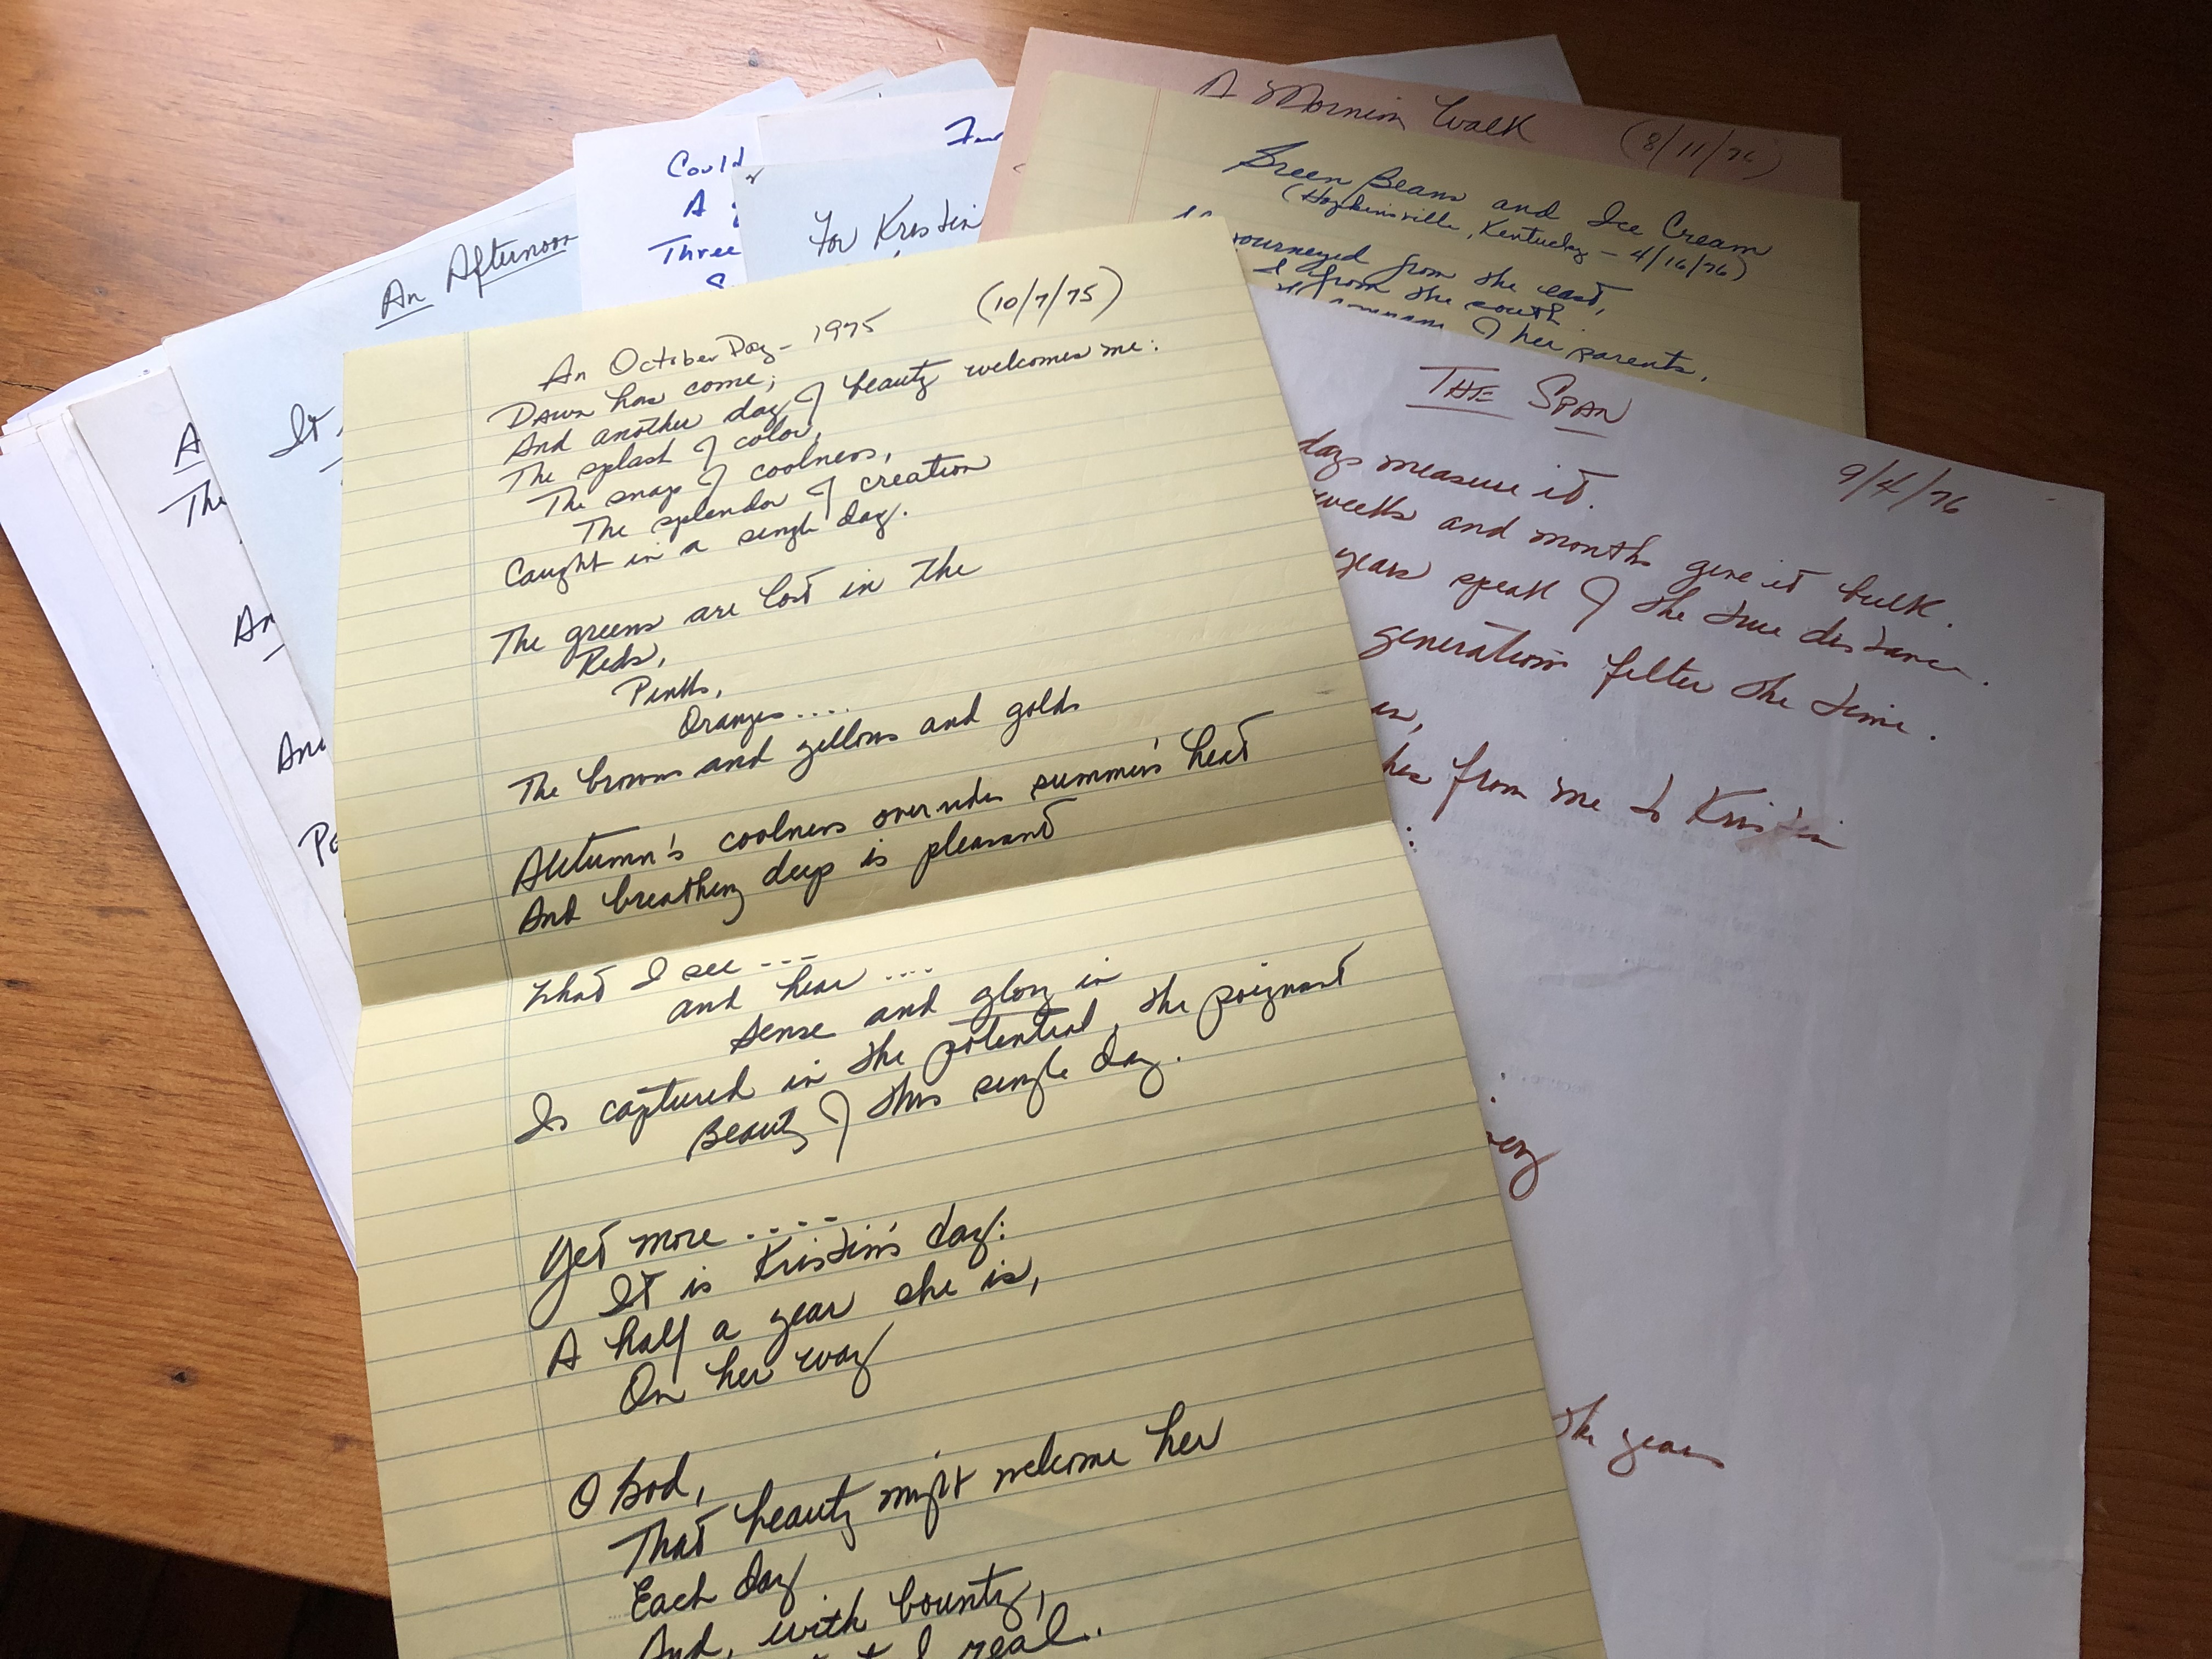 An October Day - 1975
(10/7/75)
Dawn has come;
And another day of beauty welcomes me:
The splash of color,
The snap of coolness,
The splendor of creation
Caught in a single day.
The greens are lost in the
Reds,
Pinks,
Oranges....
The browns and yellows and golds
Autumn's coolness overrides summer's heat
And breathing deep is pleasant
What I see ---
and hear ....
Sense and glory in
Is captured in the potential, the poignant
Beauty of this single day.
Yet more ....
It is Kristin's day:
A half a year she is,
On her way
O God,
That beauty might welcome her
Each day
And, with bounty,
real.
A Mornin Walk (8/11/76)
Green Beans and Ice Cream
(Hopkinsville, Kentucky - 4/16/76)
journeyed from the east,
I from the south
of her parents,
THE SPAN
9/4/76
days measure it.
weeks and months give it bulk.
years speak of the true distance.
generations filter the time.
from me to Kristin
:
the years
Could
A
Three
For Kristin
An Afternoon
It
A
The
An
And